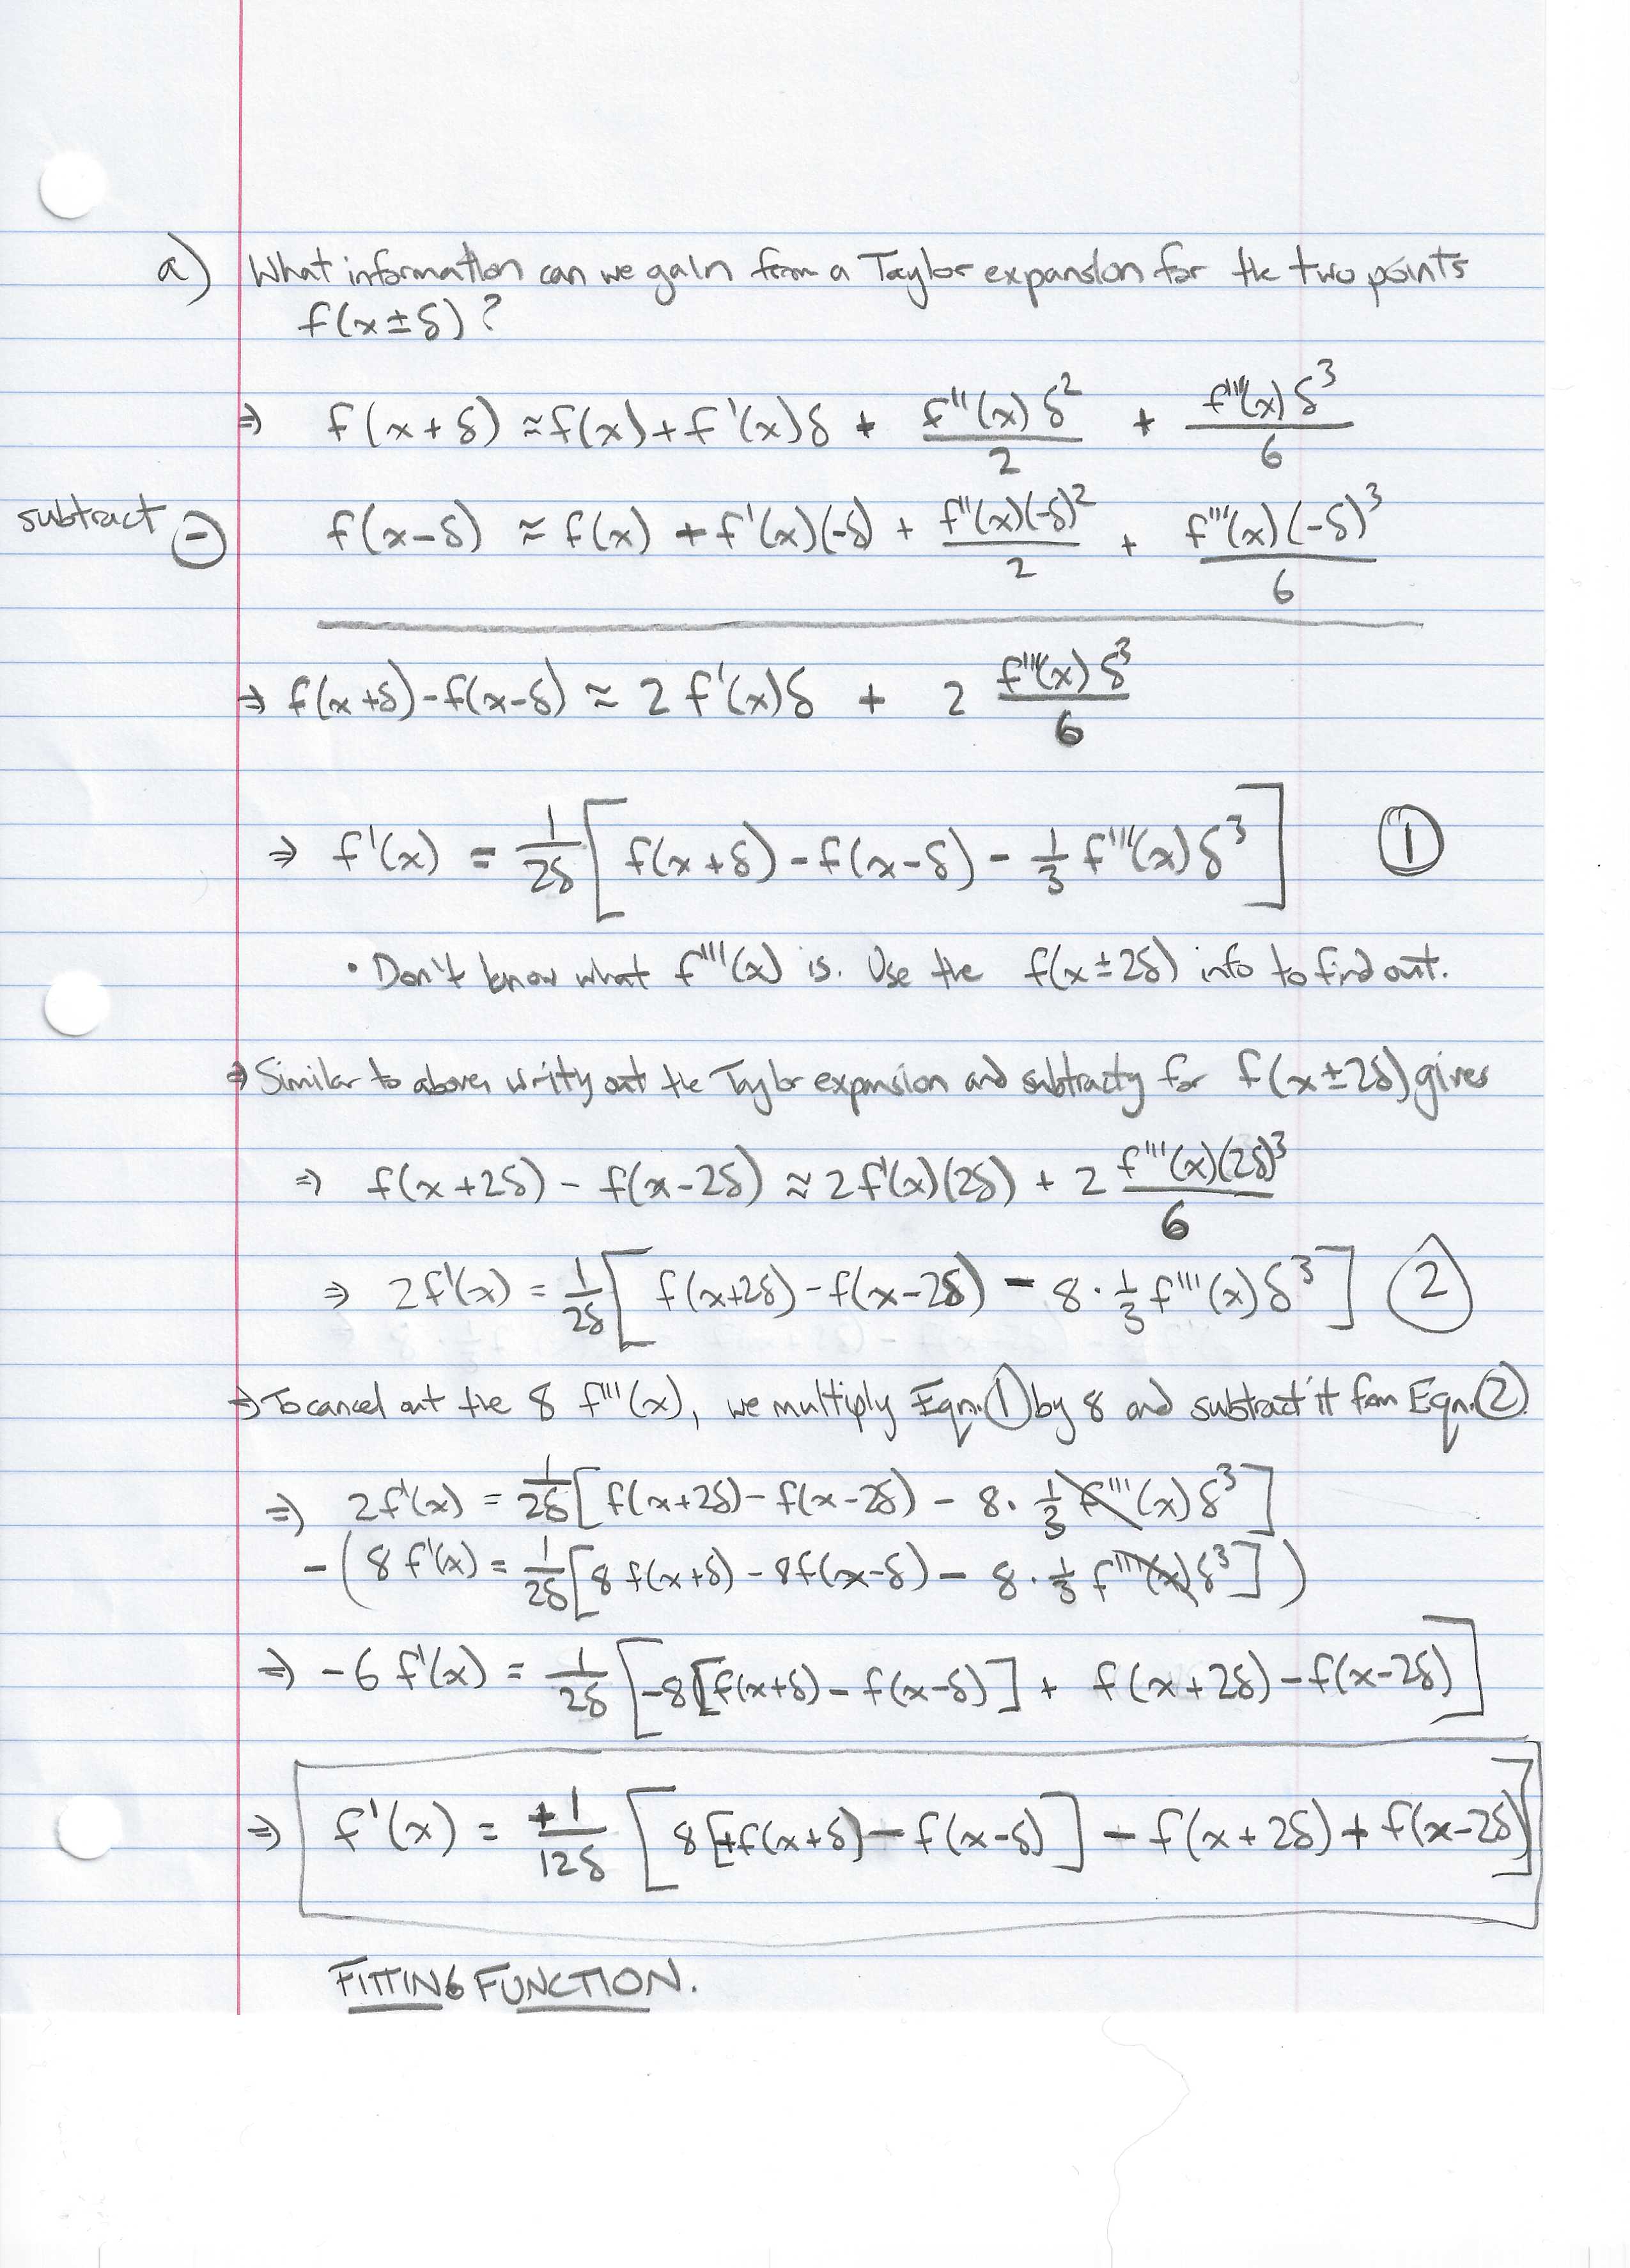 a) What information can we gain from a Taylor expansion for the two points
f(x±δ)?
⇒ f(x+δ) ≈ f(x) + f'(x)δ + f''(x)δ²/2 + f'''(x)δ³/6
subtract ⊖ f(x-δ) ≈ f(x) + f'(x)(-δ) + f''(x)(-δ)²/2 + f'''(x)(-δ)³/6
⇒ f(x+δ) - f(x-δ) ≈ 2f'(x)δ + 2 f'''(x)δ³/6
⇒ f'(x) = 1/2δ [f(x+δ) - f(x-δ) - 1/3 f'''(x)δ³] ①
• Don't know what f'''(x) is. Use the f(x±2δ) info to find out.
⇒ Similar to above, writing out the Taylor expansion and subtracting for f(x±2δ) gives
⇒ f(x+2δ) - f(x-2δ) ≈ 2f'(x)(2δ) + 2 f'''(x)(2δ)³/6
⇒ 2f'(x) = 1/2δ [f(x+2δ) - f(x-2δ) - 8·1/3 f'''(x)δ³] ②
⇒ To cancel out the 8 f'''(x), we multiply Eqn.① by 8 and subtract it from Eqn.②.
⇒ 2f'(x) = 1/2δ [f(x+2δ) - f(x-2δ) - 8·1/3 f'''(x)δ³]
-(8f'(x) = 1/2δ [8f(x+δ) - 8f(x-δ) - 8·1/3 f'''(x)δ³])
⇒ -6f'(x) = 1/2δ [-8[f(x+δ) - f(x-δ)] + f(x+2δ) - f(x-2δ)]
⇒ f'(x) = +1/12δ [8[+f(x+δ) - f(x-δ)] - f(x+2δ) + f(x-2δ)]
FITTING FUNCTION.